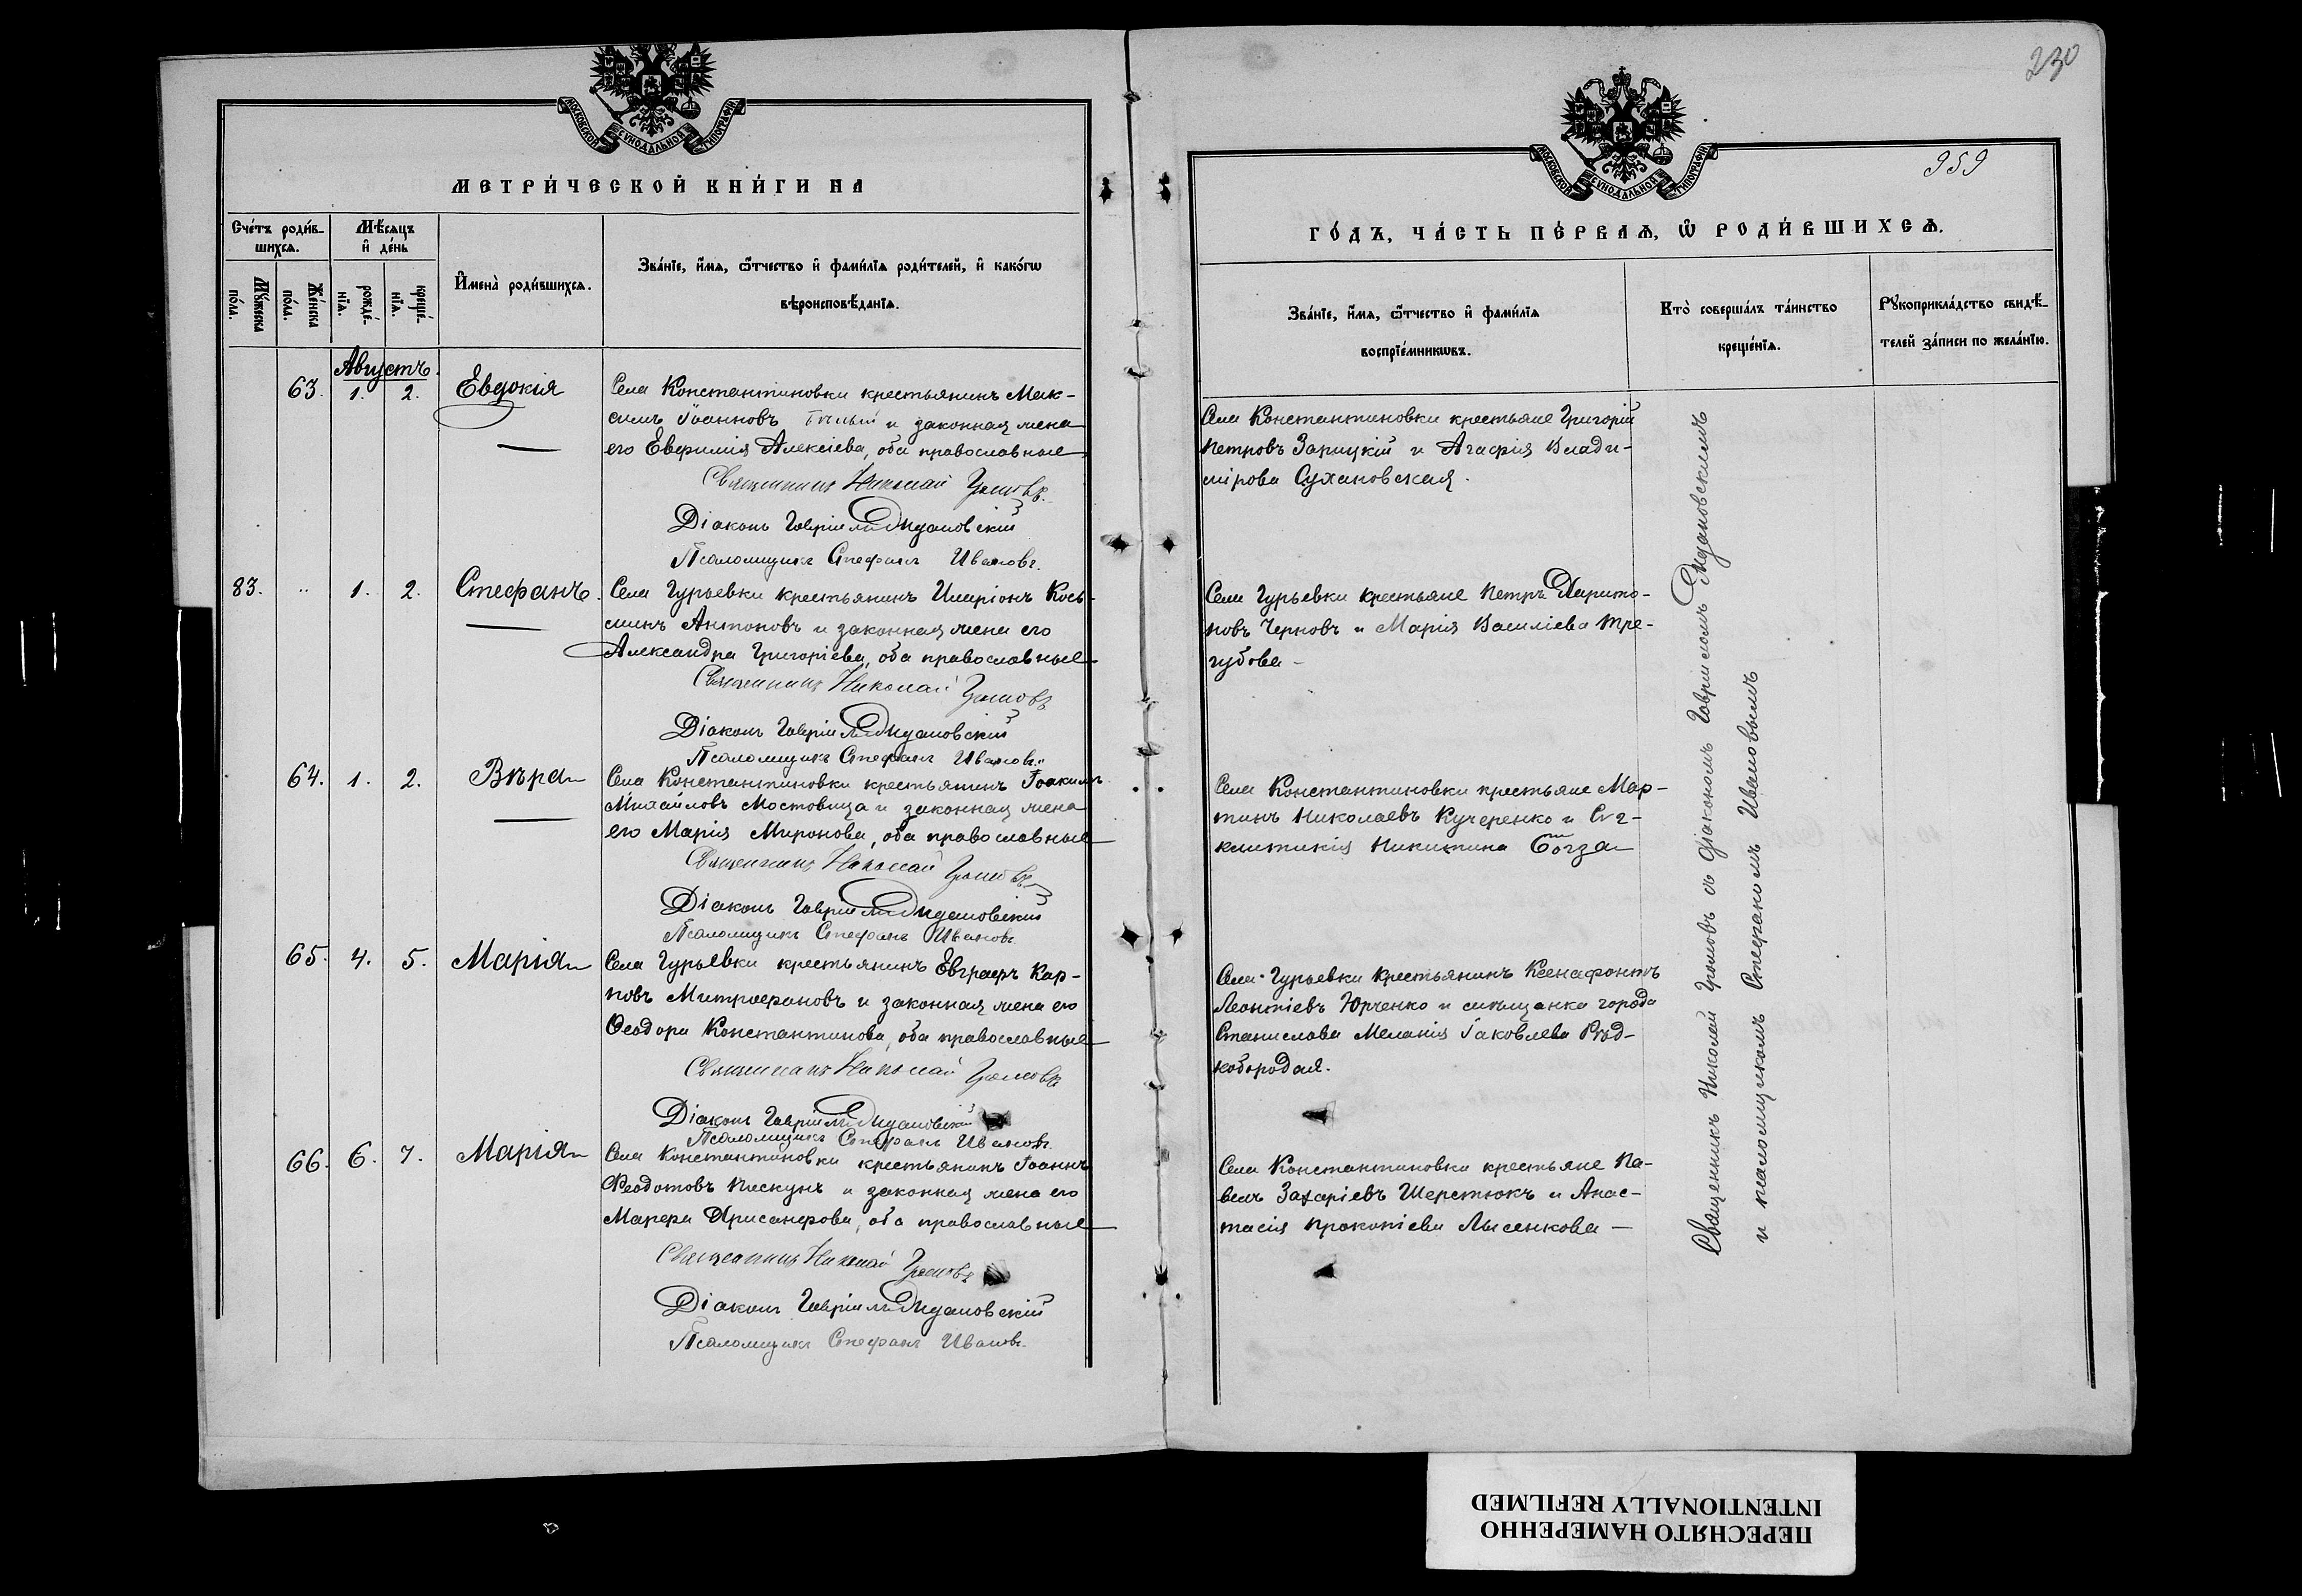 230
МОСКОВСКОЙ СѴНОДАЛЬНОЙ ТИПОГРАФІИ
МЕТРИ́ЧЕСКОЙ КНИ́ГИ НА
Сче́тъ роди́в-
шихся.
Мѣ́сяцъ
и҆ де́нь
Мꙋ́жеска
по́ла.
Же́нска
по́ла.
рожде́-
нїѧ.
креще́-
нїѧ.
И҆мена̀ роди́вшихсѧ.
Зва́нїе, и҆́мѧ, ѻ҆́тчество и҆ фами́лїѧ роди́телей, и҆ како́гѡ
вѣроисповѣ́данїѧ.
Августъ.
63. 1. 2. Евдокія
Села Константиновки крестьянинъ Мак-
симъ Іоанновъ и законная жена
его Евфимія Алексіева, оба православные
Священникъ Николай Громовъ.
Діаконъ Гавріилъ
Псаломщикъ Стефанъ Ивановъ.
83. " 1. 2. Стефанъ.
Села Гурьевки крестьянинъ Иларіонъ Кось-
минъ Антоновъ и законная жена его
Александра Григоріева, оба православные
Священникъ Николай Громовъ
Діаконъ Гавріилъ
Псаломщикъ Стефанъ Ивановъ.
64. 1. 2. Вѣра
Села Константиновки крестьянинъ Іоакимъ
Михайловъ Мостовица и законная жена
его Марія Миронова, оба православные
Священникъ Николай Громовъ
Діаконъ Гавріилъ
Псаломщикъ Стефанъ Ивановъ
65. 4. 5. Марія
Села Гурьевки крестьянинъ Евграфъ Кар-
повъ Митрофановъ и законная жена его
Ѳеодора Константинова, оба православные
Священникъ Николай Громовъ
Діаконъ Гавріилъ
Псаломщикъ Стефанъ Ивановъ.
66. 6. 7. Марія
Села Константиновки крестьянинъ Іоаннъ
Ѳеодотовъ Пискунъ и законная жена его
Марѳа Хрисанфова, оба православные
Священникъ Николай Громовъ
Діаконъ Гавріилъ
Псаломщикъ Стефанъ Ивановъ.
МОСКОВСКОЙ СѴНОДАЛЬНОЙ ТИПОГРАФІИ
959
ГО́ДЪ, ЧА́СТЬ ПЕ́РВАѦ, Ѡ҆ РОДИ́ВШИХСѦ.
Зва́нїе, и҆́мѧ, ѻ҆́тчество и҆ фами́лїѧ
воспрїе́мникѡвъ.
Кто̀ соверша́лъ та́инство
креще́нїѧ.
Рꙋкоприкла́дство свидѣ́-
телей за́писи по жела́нїю.
Села Константиновки крестьяне Григорій
Петровъ Зарицкій и Агафія Влади-
мірова Сухановская.
Села Гурьевки крестьяне Петръ Харито-
новъ Черновъ и Марія Василіева Тре-
губова
Села Константиновки крестьяне Мар-
тинъ Николаевъ Кучеренко и Син-
клитикія Никитина
Села Гурьевки крестьянинъ Ксенофонтъ
Леонтіевъ Юрченко и мѣщанка города
Станислава Меланія Іаковлева Рѣд-
кобородая.
Села Константиновки крестьяне Па-
велъ Захаріевъ Шерстюкъ и Анас-
тасія Прокопіева Лысенкова
Священникъ Николай Громовъ съ діакономъ Гавріиломъ
и псаломщикомъ Стефаномъ Ивановымъ
ПЕРЕСНЯТО НАМЕРЕННО
INTENTIONALLY REFILMED